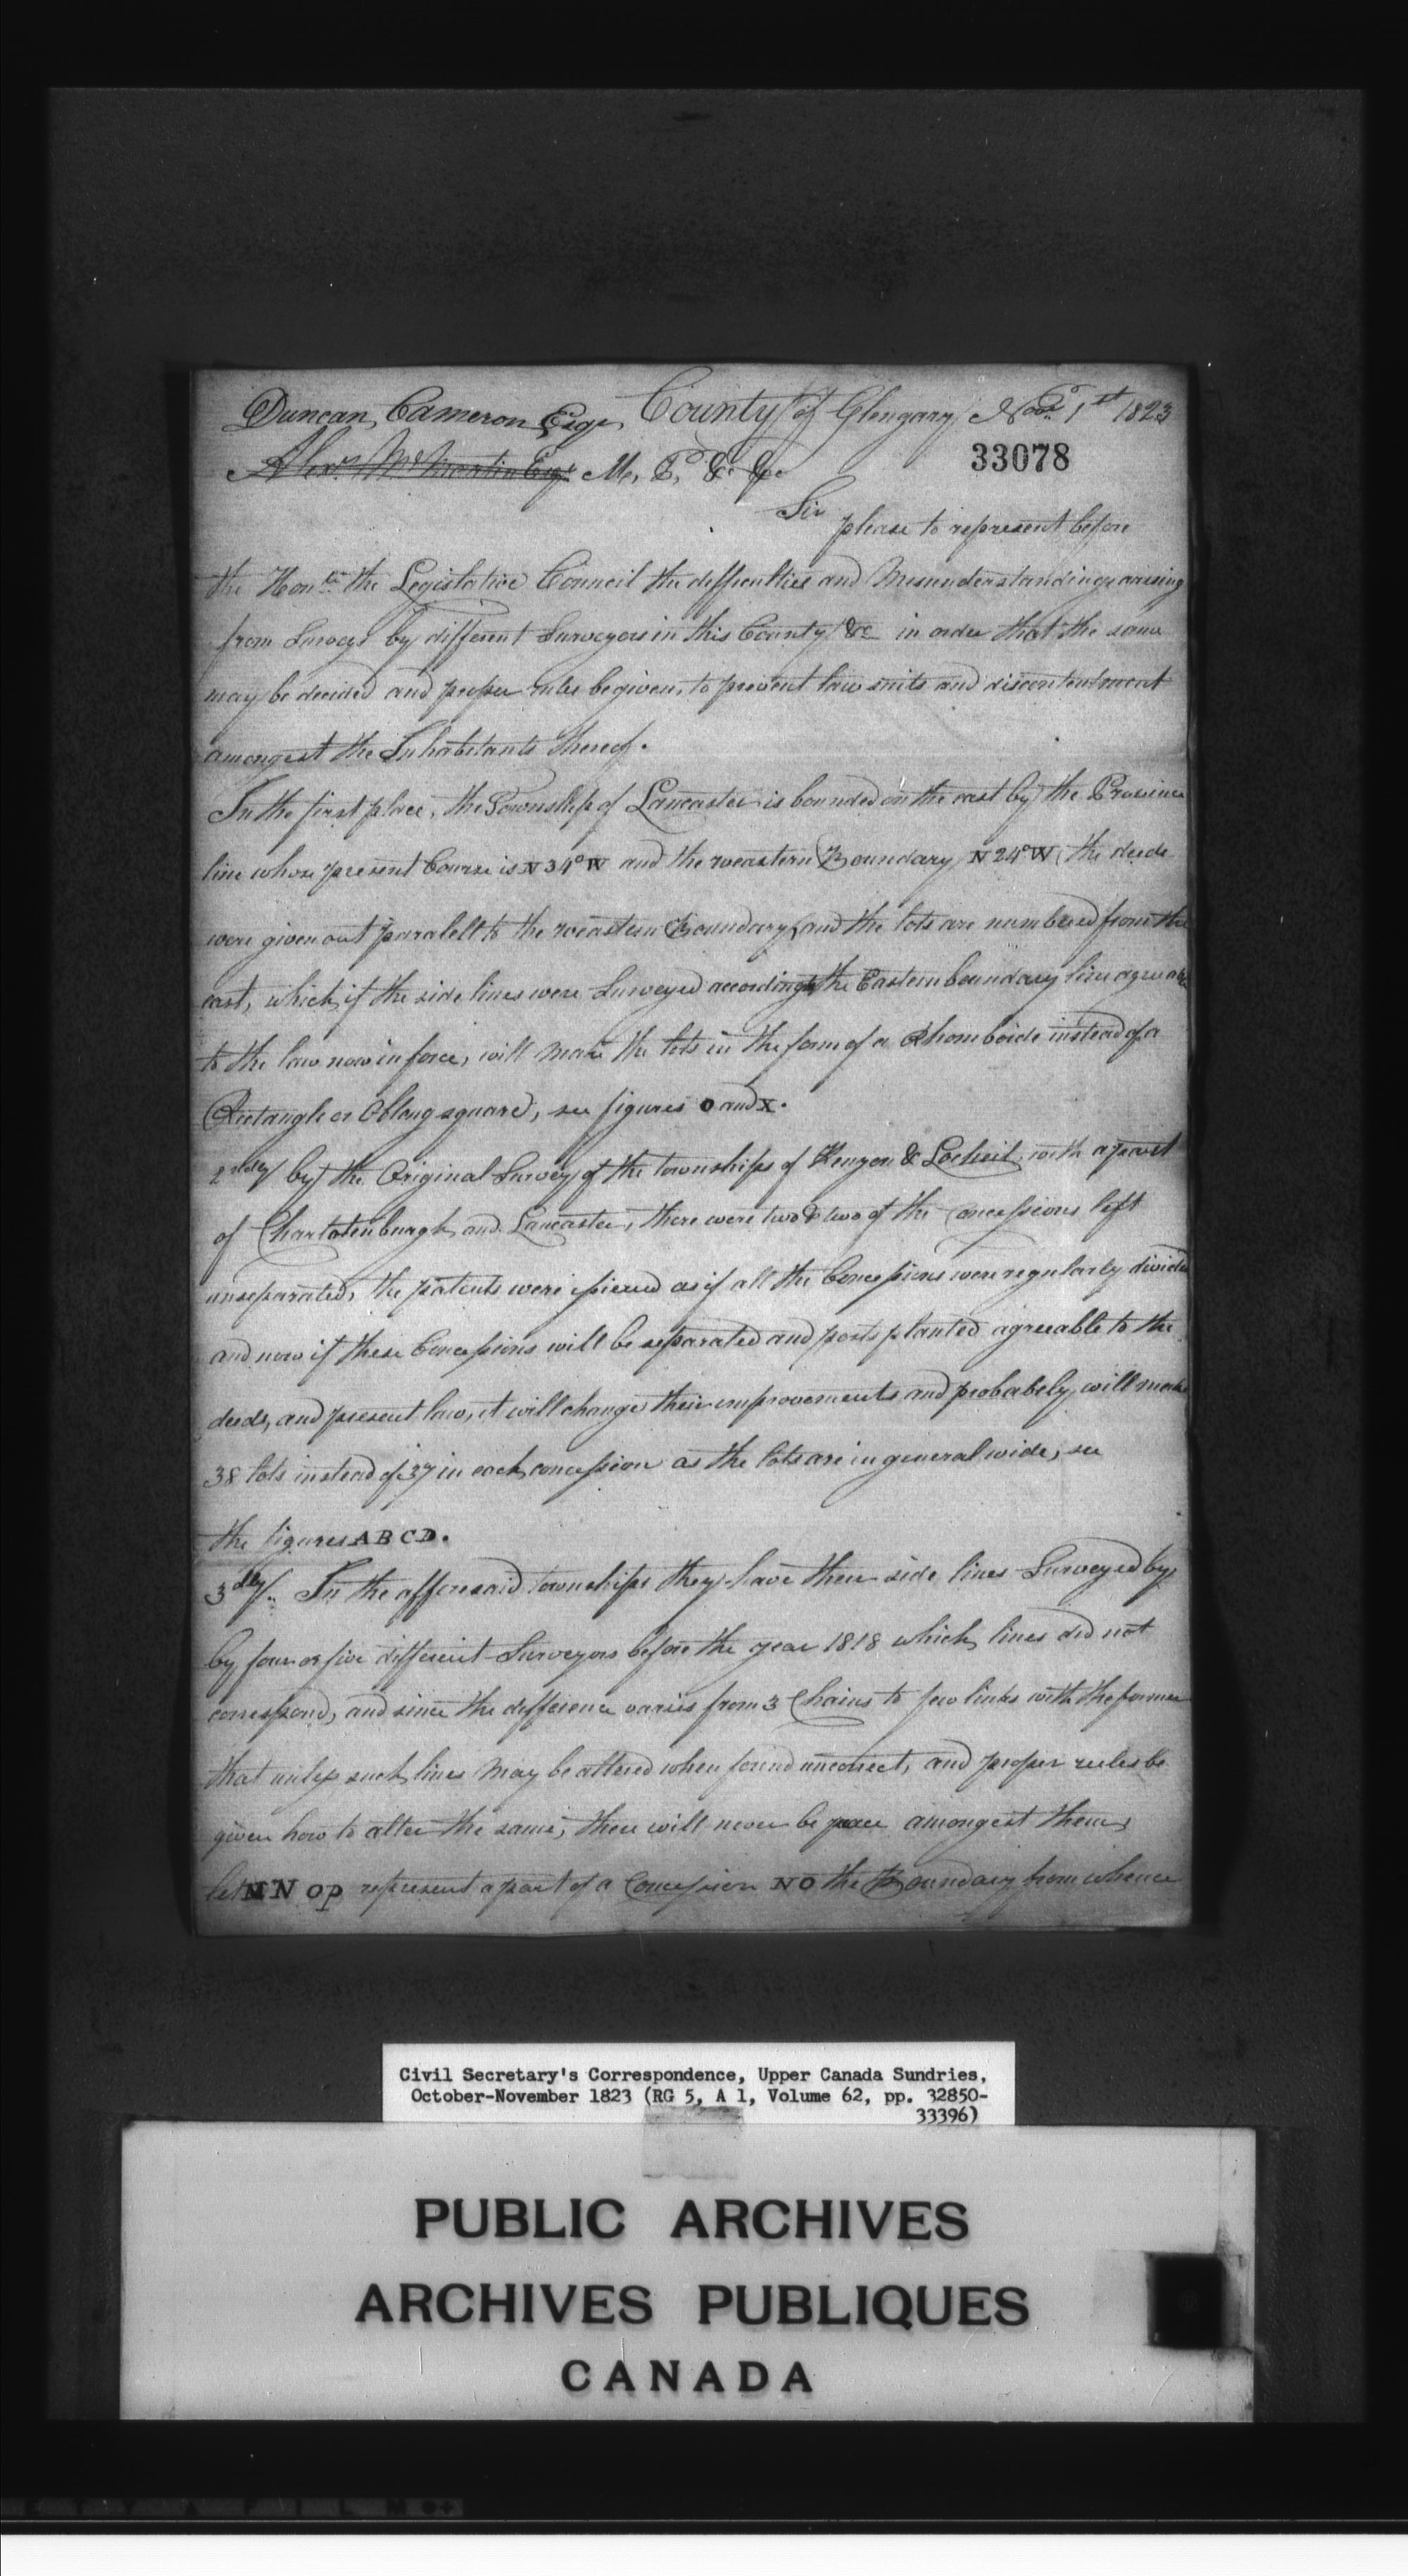 Duncan Cameron Esqr. County of Glengary Novr. 1st 1823
Alexr. McMartin Esqr. M. P. &c &c
33078
Sir please to represent before
the Honble. the Legislative Council the difficulties and Misunderstandings arising
from Surveys by different Surveyors in this County &c in order that the same
may be decided and proper rules be given, to prevent law suits and discontentment
amongest the Inhabitants thereof.
In the first place, the Township of Lancaster is bounded on the east by the Province
line whose present Course is N34°W and the weastern Boundary N24°W, the deeds
were given out paralell to the weastern Boundary, and the lots are numbered from the
east, which if the side lines were Surveyed according to the Eastern boundary line agreeable
to the law now in force, will make the lots in the form of a Rhomboide instead of a
Rectangle or Oblong square, see figures O and X.
2ndly by the Original Survey of the townships of Kenyon & Locheil with a part
of Charlotenburgh and Lancaster, there were two & two of the Concessions left
unseparated, the patents were issued as if all the Concessions were regularly divided
and now if these Concessions will be separated and posts planted agreeable to the
deeds, and present law, it will change their improvements and probabely will make
38 lots instead of 37 in each concession as the lots are in general wide, see
the figures A B C D.
3dly. In the afforesaid townships they have their side lines Surveyed by
by four or five different Surveyors before the year 1818 which lines did not
correspond, and since the difference varies from 3 Chains to few links with the former
that unless such lines may be altered when found uncorrect, and proper rules be
given how to alter the same, there will never be peace amongest them,
let M N O P represent a part of a Concession NO the Boundary from whence
Civil Secretary's Correspondence, Upper Canada Sundries,
October-November 1823 (RG 5, A 1, Volume 62, pp. 32850-
33396)
PUBLIC ARCHIVES
ARCHIVES PUBLIQUES
CANADA